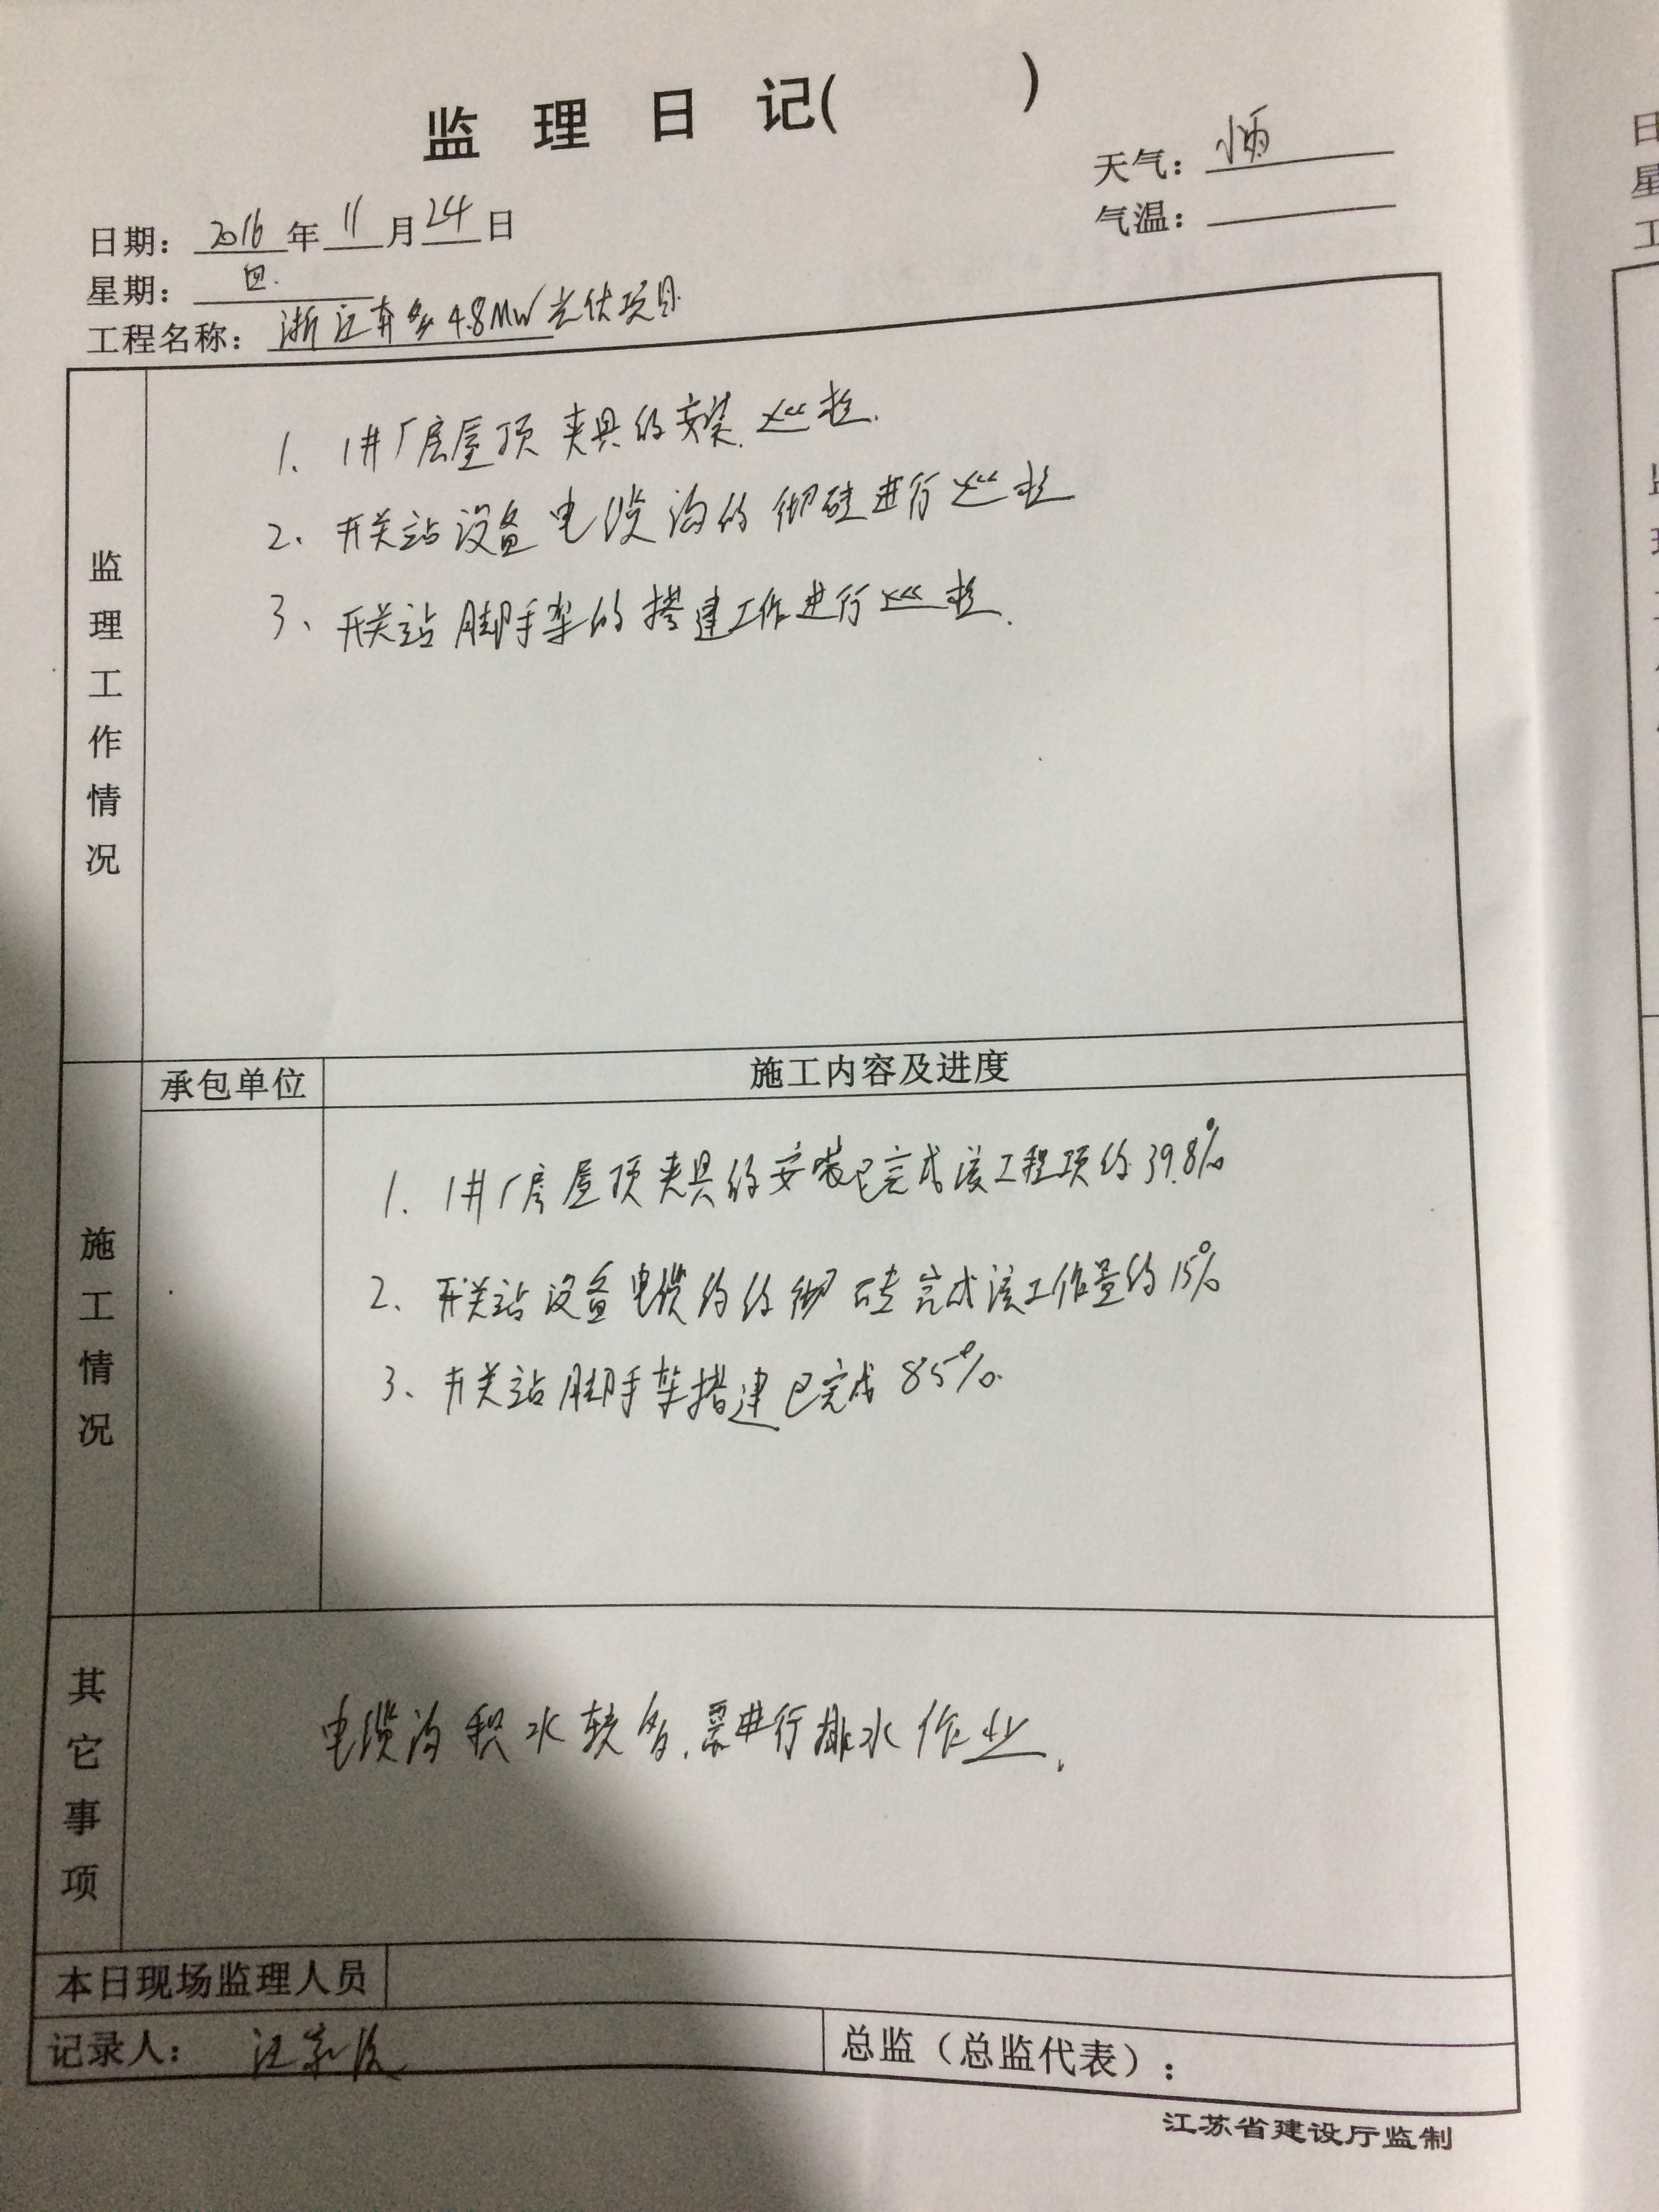 监理日记( )
天气：小雨
日期：2016年11月24日
气温：
星期：四.
工程名称：浙江奔多4.8MW光伏项目
监理工作情况
1、1#厂房屋顶夹具的安装.巡检.
2、开关站设备电缆沟的彻砖进行巡检
3、开关站脚手架的搭建工作进行巡检.
承包单位
施工内容及进度
施工情况
1、1#厂房屋顶夹具的安装已完成该工程项的39.8%
2、开关站设备电缆沟的彻砖完成该工作量的15%
3、开关站脚手架搭建已完成85%.
其它事项
电缆沟积水较多,需进行排水作业.
本日现场监理人员
记录人：汪
总监（总监代表）：
江苏省建设厅监制
日
星
工